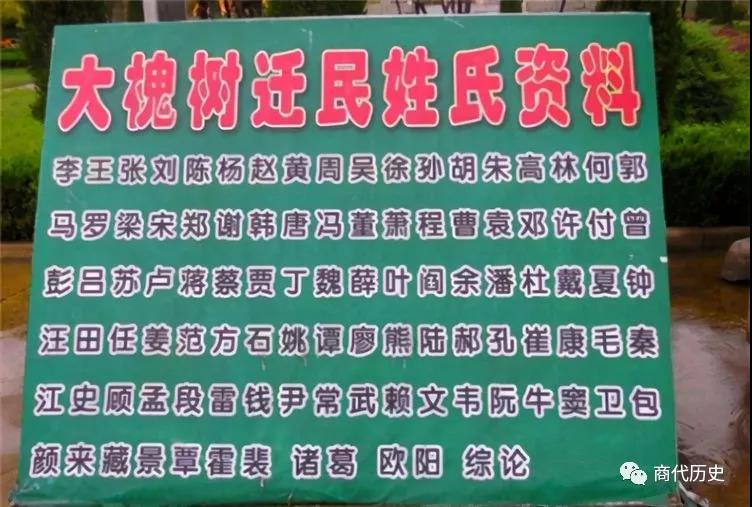 大槐树迁民姓氏资料
李王张刘陈杨赵黄周吴徐孙胡朱高林何郭
马罗梁宋郑谢韩唐冯董萧程曹袁邓许付曾
彭吕苏卢蒋蔡贾丁魏薛叶阎余潘杜戴夏钟
汪田任姜范方石姚谭廖熊陆郝孔崔康毛秦
江史顾孟段雷钱尹常武赖文韦阮牛窦卫包
颜来藏景覃霍裴 诸葛 欧阳 综论
商代历史